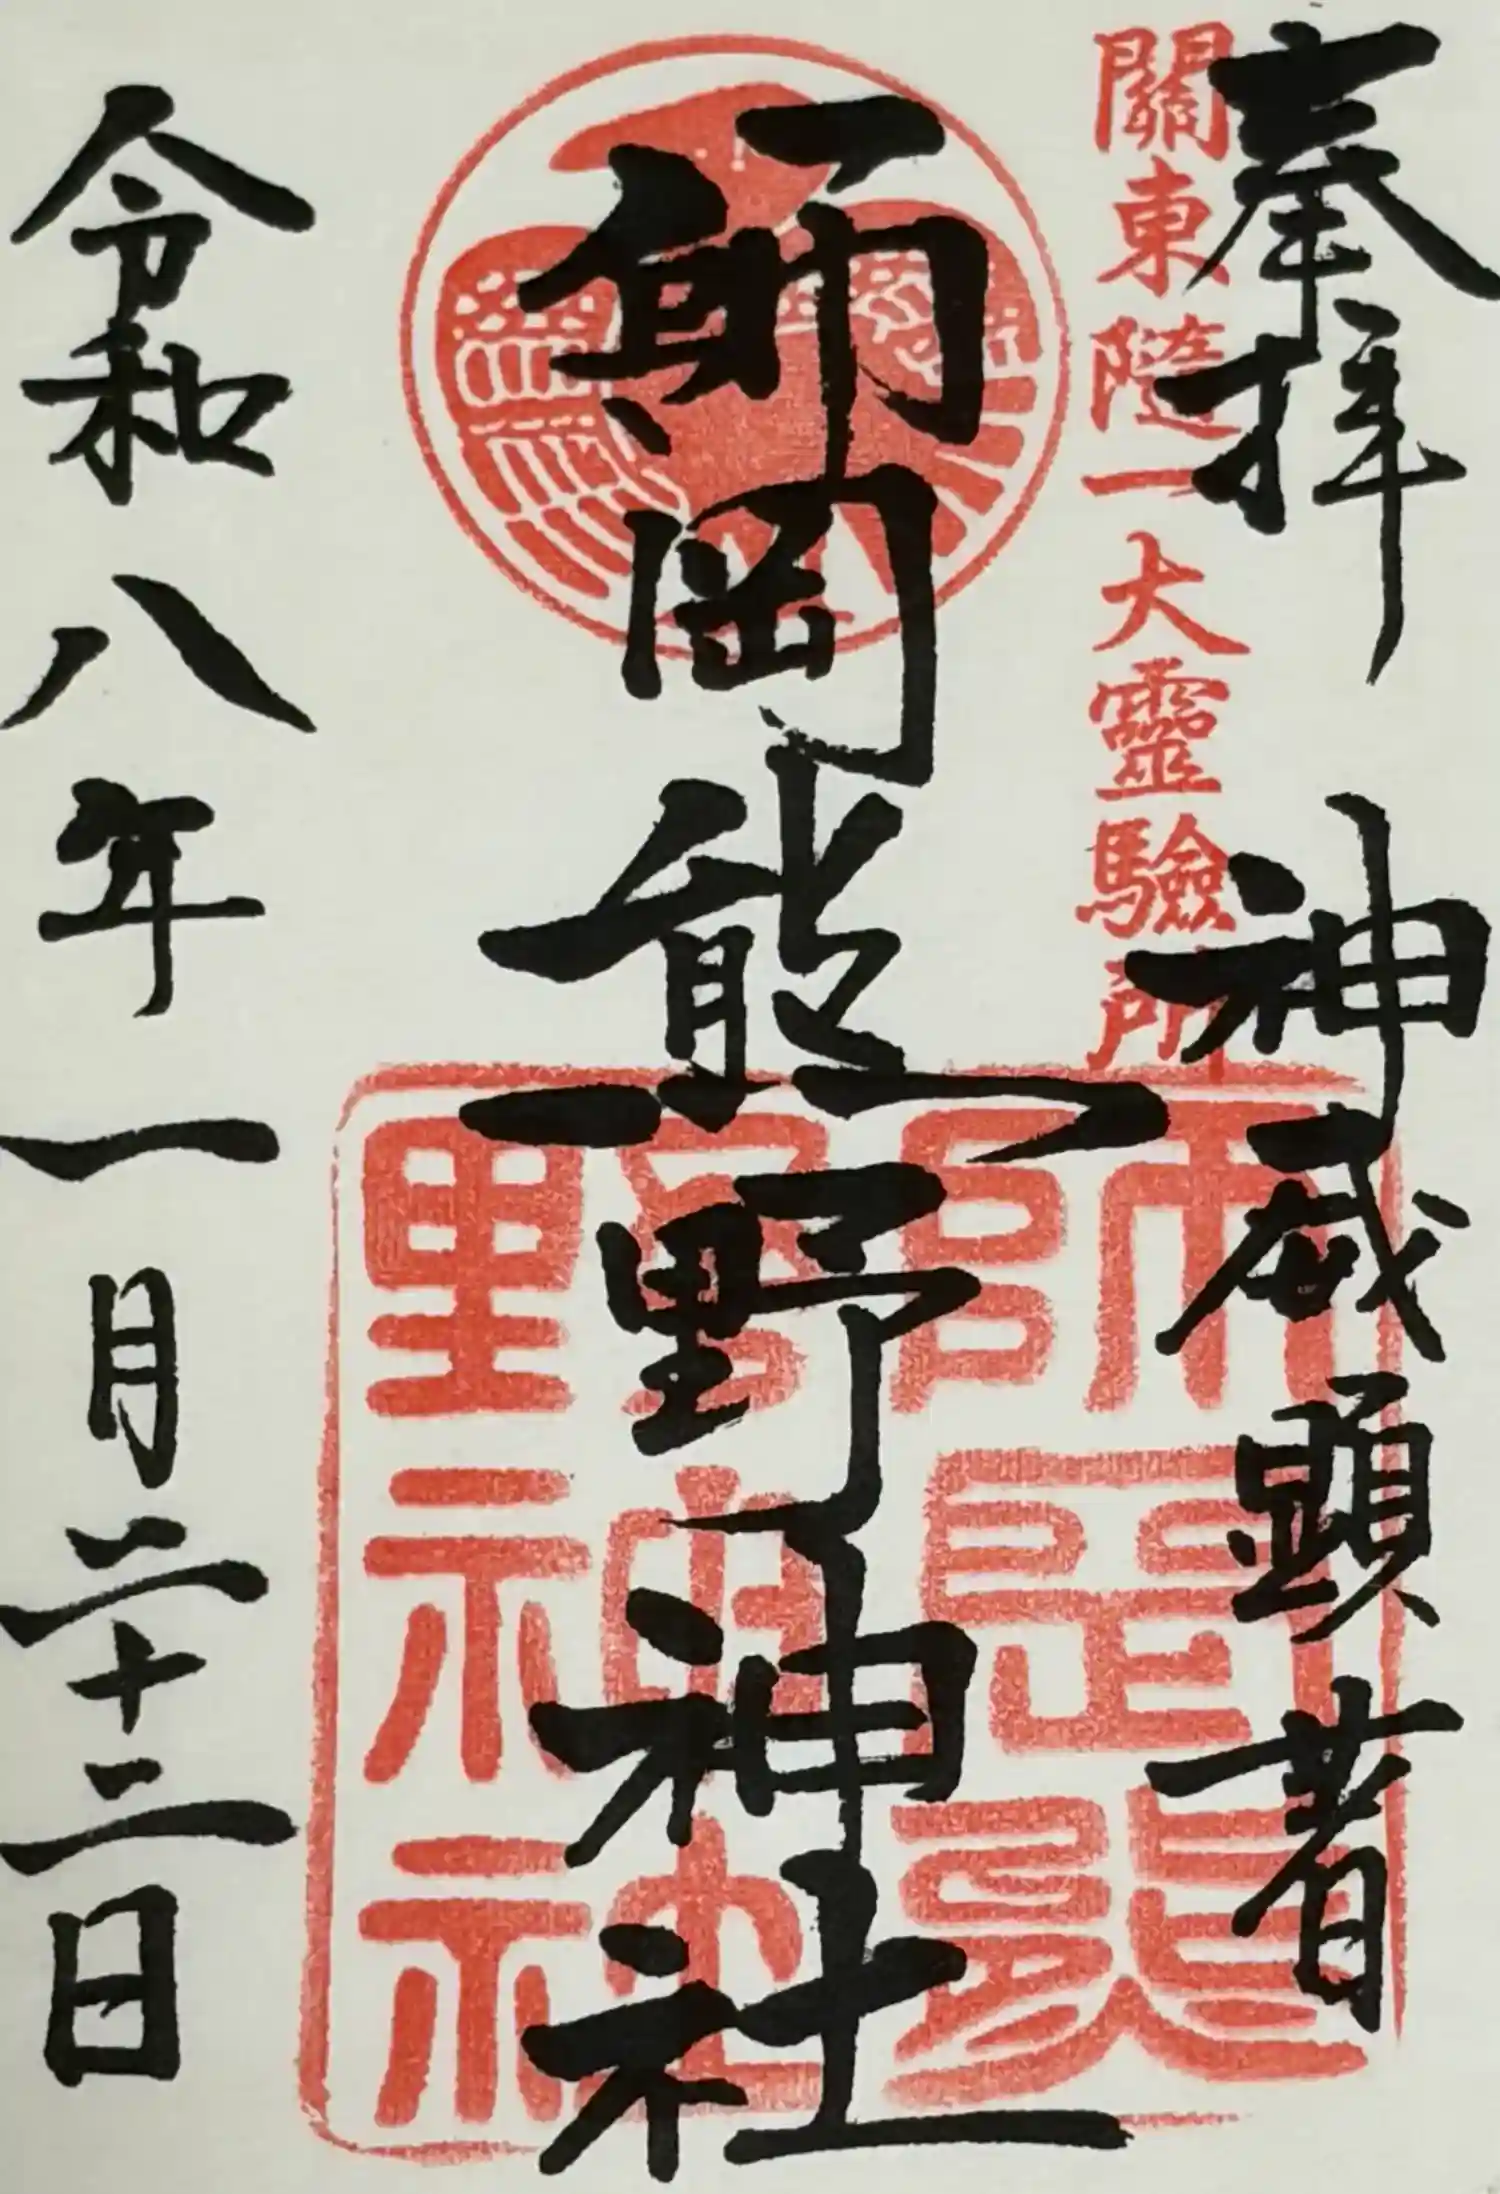 奉拝 神威顕著
關東随一大靈驗所
師岡熊野神社
師岡熊野神社
令和八年一月二十二日